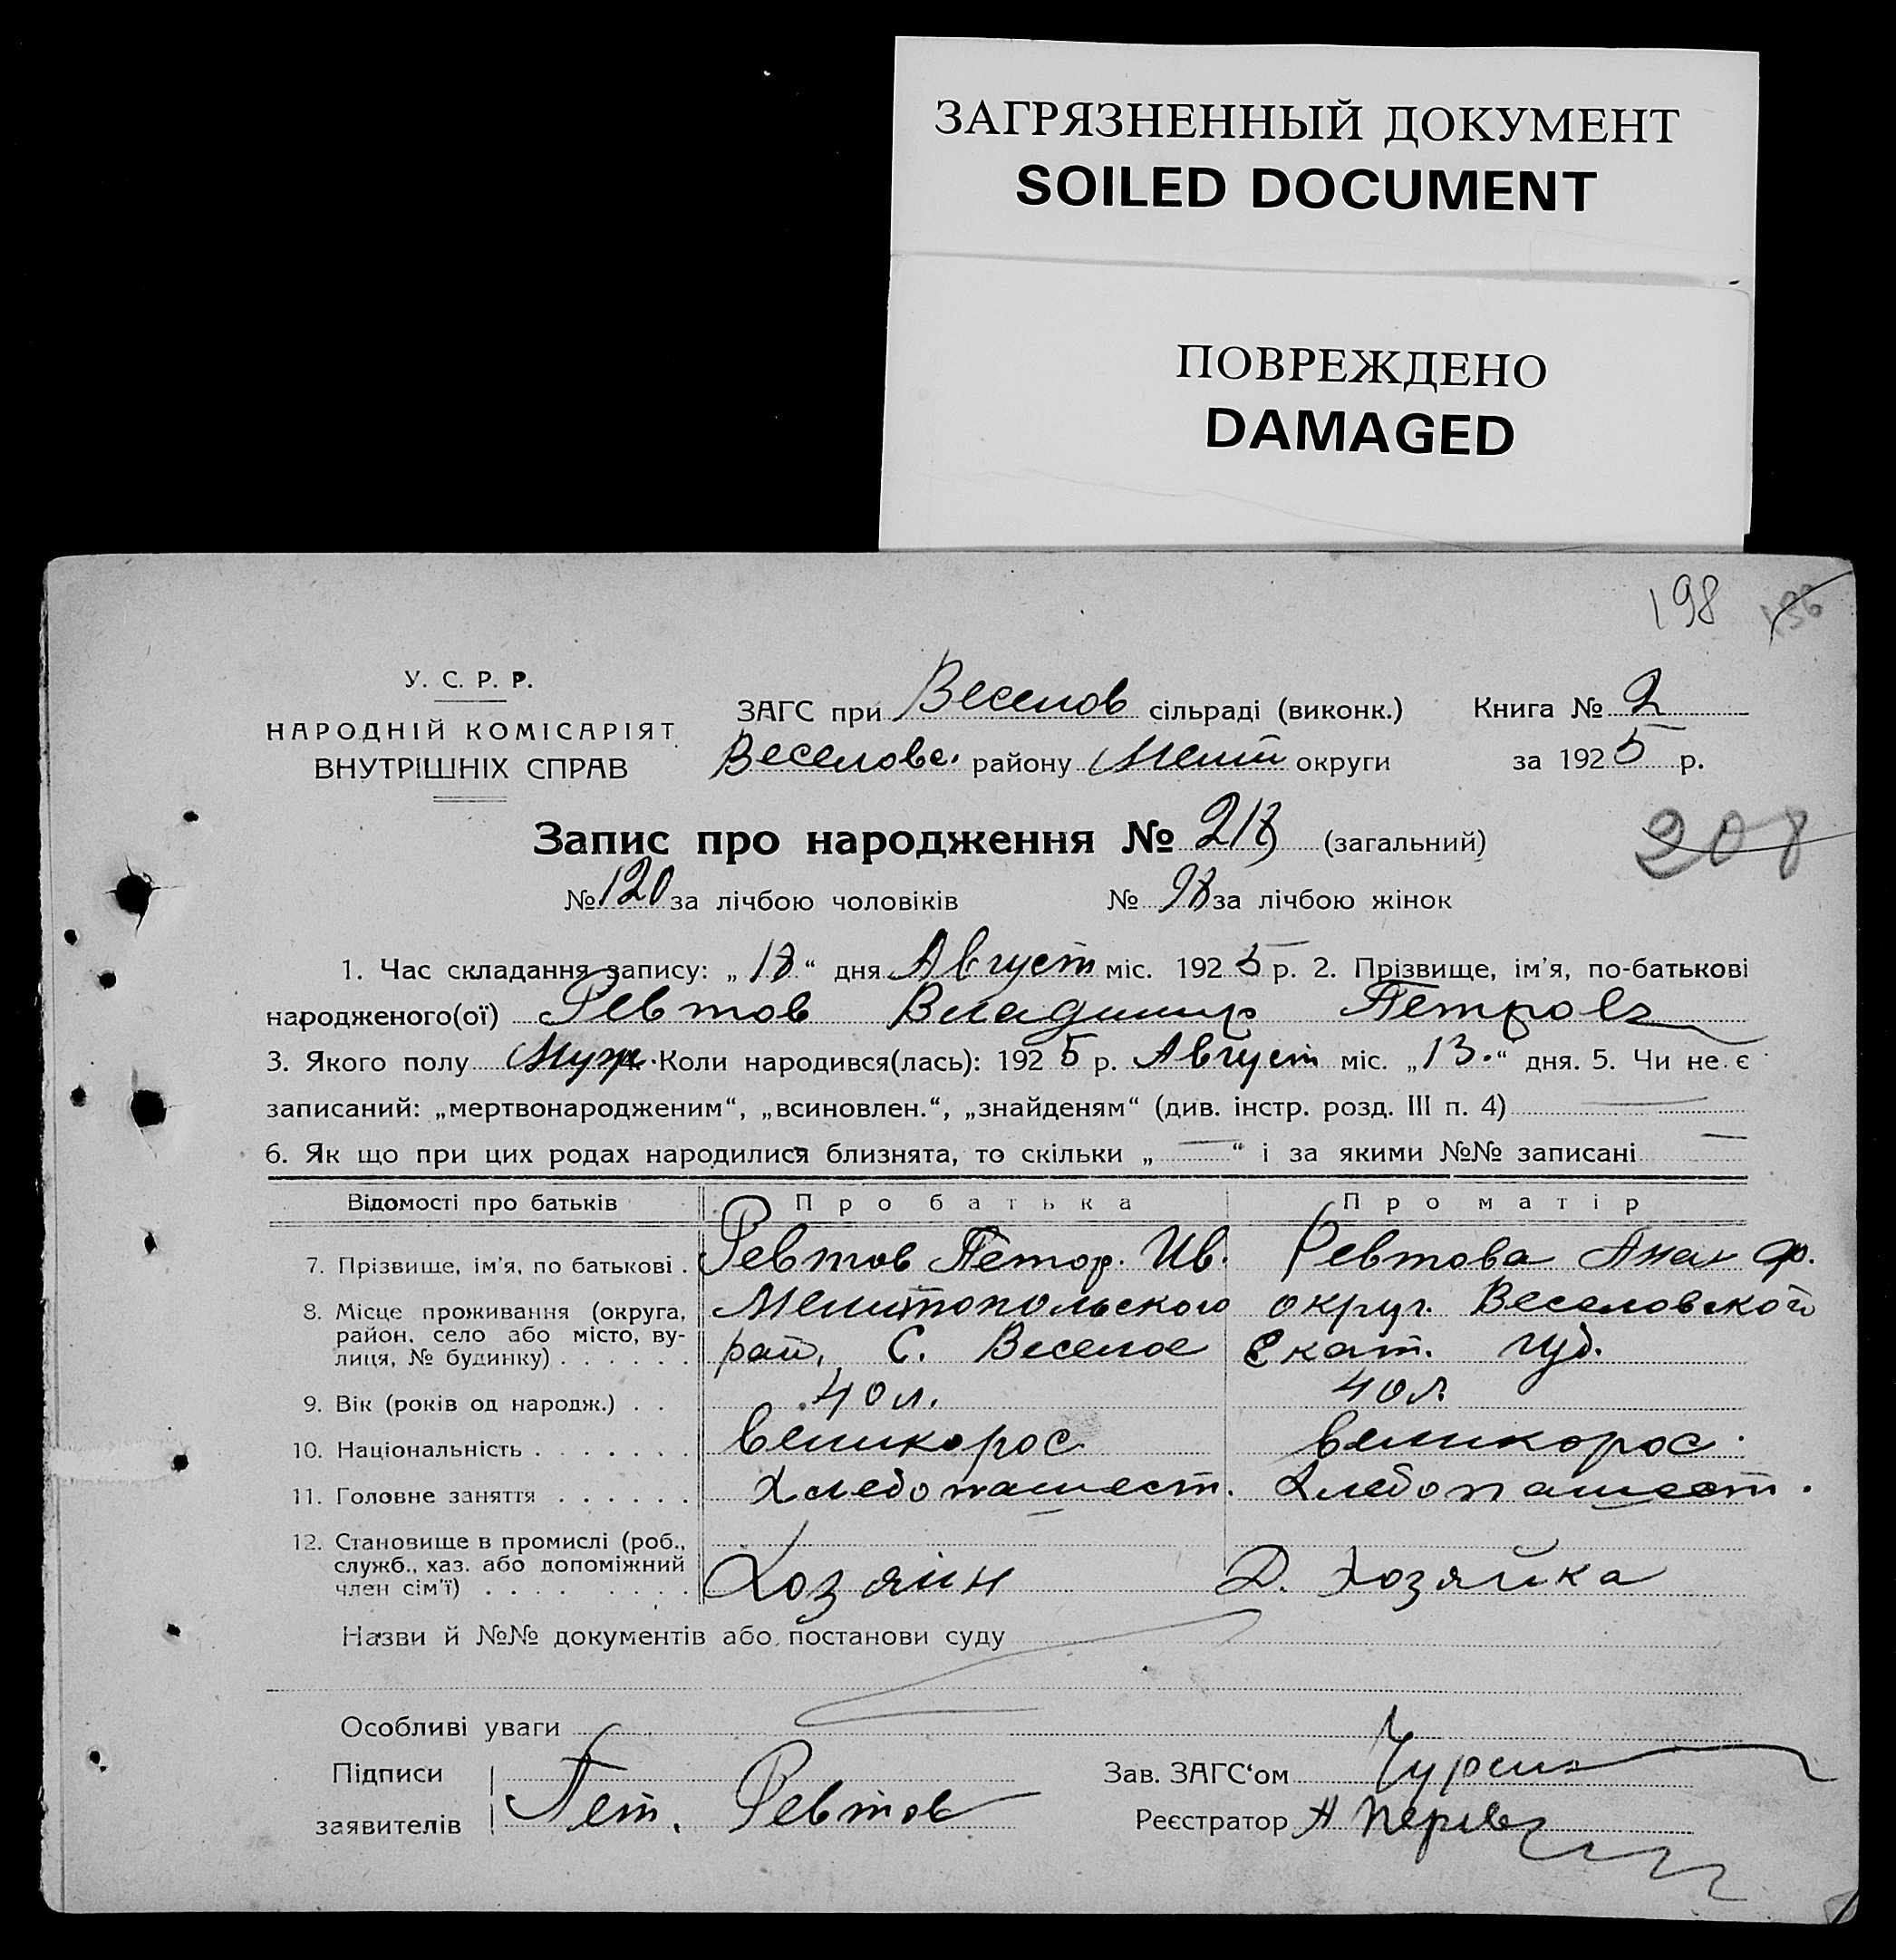 ЗАГРЯЗНЕННЫЙ ДОКУМЕНТ
SOILED DOCUMENT
ПОВРЕЖДЕНО
DAMAGED
198 136
У. С. Р. Р.
НАРОДНІЙ КОМІСАРІЯТ
ВНУТРІШНІХ СПРАВ
ЗАГС при Веселов сільраді (виконк.) Книга № 2
Веселовс. району Мелит округи за 1925 р.
Запис про народження № 218 (загальний)
208
№ 120 за лічбою чоловіків № 98 за лічбою жінок
1. Час складання запису: „18“ дня Август міс. 1925 р. 2. Прізвище, ім'я, по-батькові
народженого(ої) Ревтов Владимир Петров
3. Якого полу Муж. 4. Коли народився(лась): 1925 р. Август міс. „13.“ дня. 5. Чи не є
записаний: „мертвонародженим“, „всиновлен.“, „знайденям“ (див. інстр. розд. III п. 4) —
6. Як що при цих родах народилися близнята, то скільки „—“ і за якими №№ записані —
Відомості про батьків Про батька Про матір
7. Прізвище, ім'я, по батькові . Ревтов Петор. Ив. Ревтова Ф.
8. Місце проживання (округа, район, село або місто, вулиця, № будинку) . . . . . . Мелитопольского округ. Веселовского
рай. С. Веселое Екат. губ.
9. Вік (років од народж.) . . 40 л. 40 л
10. Національність . . . . . . . великорос. великорос.
11. Головне заняття . . . . . . Хлебопашест. Хлебопашест.
12. Становище в промислі (роб., служб., хаз. або допоміжний член сім'ї) . . . . . . . Хозяин Д. Хозяйка
Назви й №№ документів або постанови суду
Особливі уваги
Підписи заявителів Пет. Ревтов
Зав. ЗАГС'ом
Реєстратор А